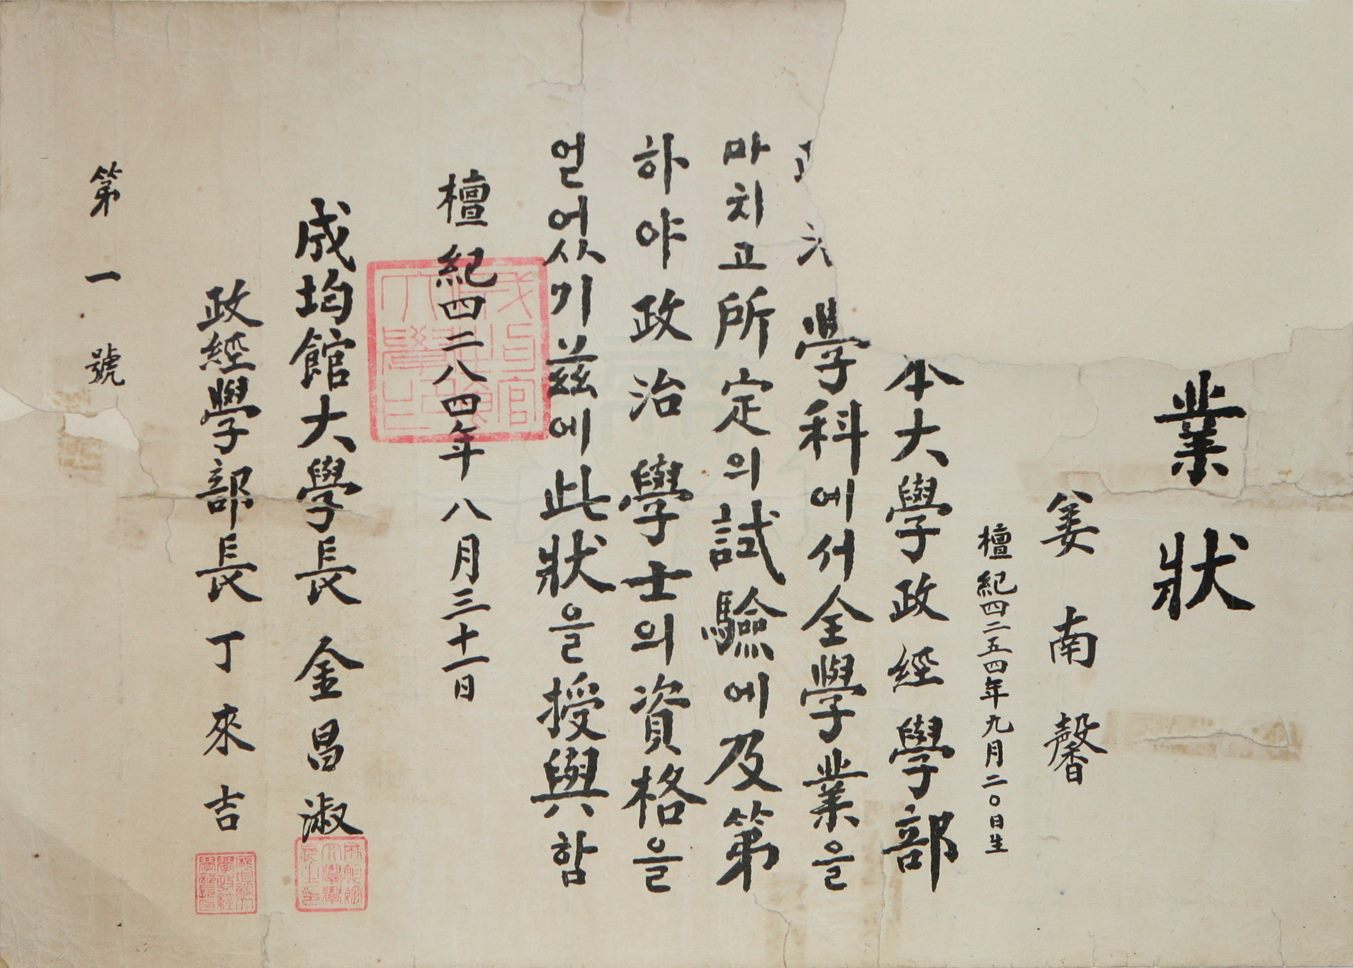 業狀
姜南馨
檀紀四二五四年九月二〇日生
本大學政經學部
學科에서全學業을
마치고所定의試驗에及第
하야政治學士의資格을
얻었기玆에此狀을授與함
檀紀四二八四年八月三十一日
成均館大學長 金昌淑
政經學部長 丁來吉
第一號